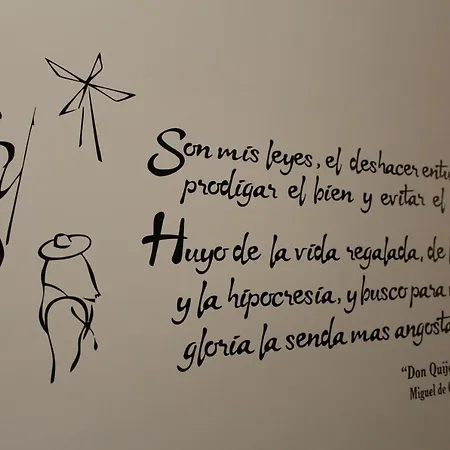 Son mis leyes, el deshacer entu
prodigar el bien y evitar el
Huyo de la vida regalada, de l
y la hipocresía, y busco para
gloria la senda mas angosta
“Don Quij
Miguel de